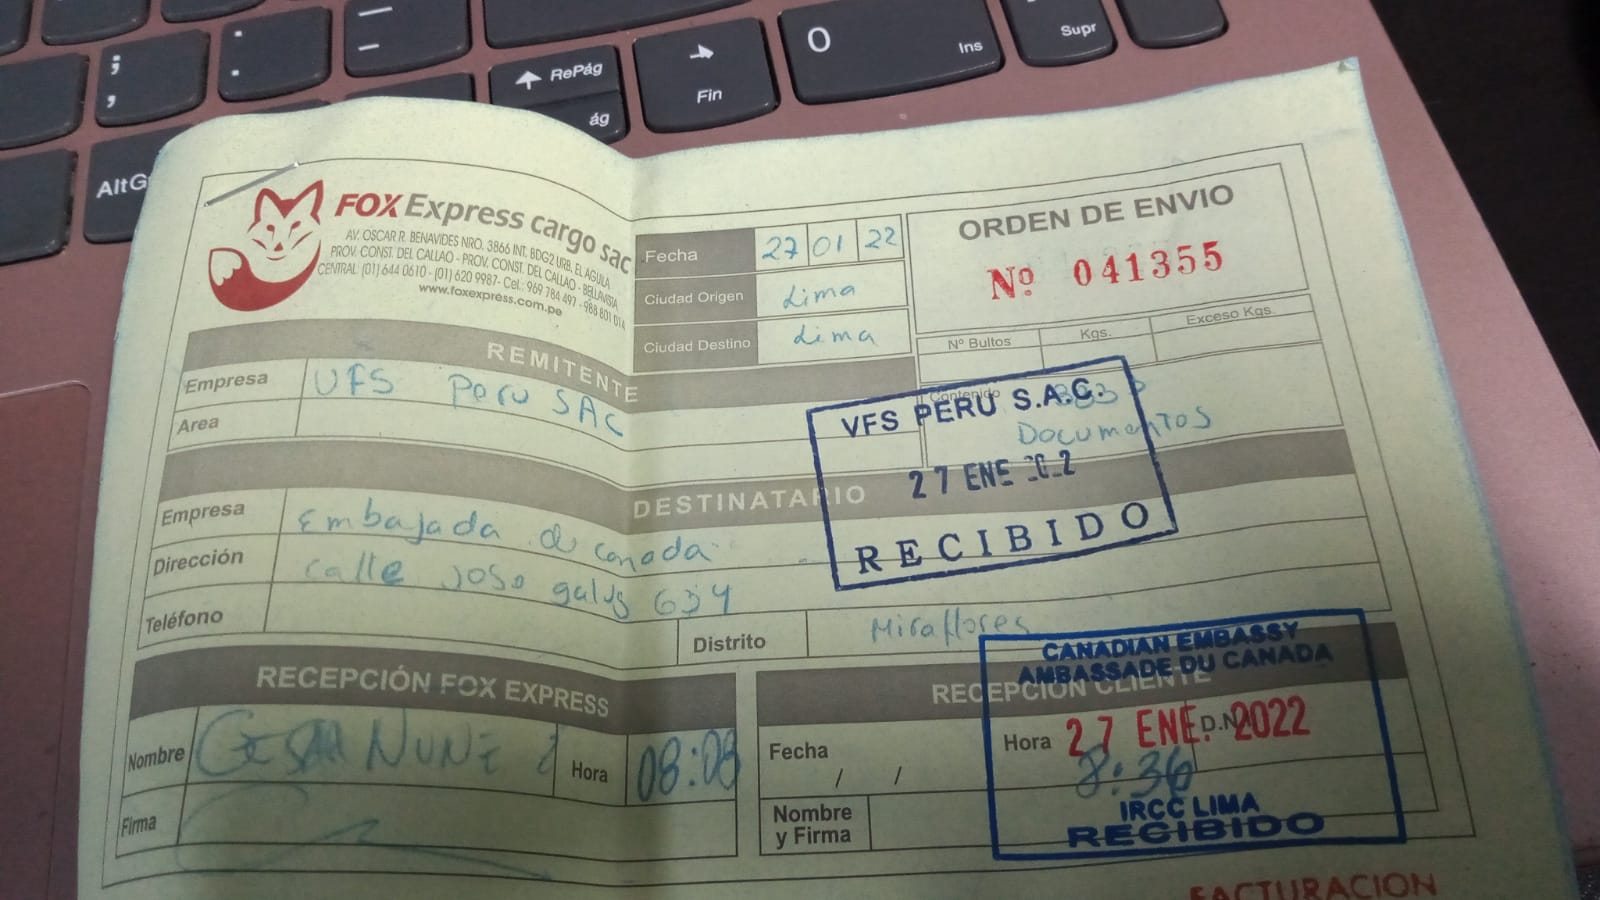 ; ,
: .
_ –
RePág
ág
Fin
0 Ins
Supr
AltG
FOX Express cargo sac
AV. OSCAR R. BENAVIDES NRO. 3866 INT. BDG2 URB. EL AGUILA
PROV. CONST. DEL CALLAO - PROV. CONST. DEL CALLAO - BELLAVISTA
CENTRAL: (01) 644 0610 - (01) 620 9987- Cel.: 969 784 497 - 988 801 014
www.foxexpress.com.pe
Fecha 27 01 22
Ciudad Origen Lima
Ciudad Destino Lima
ORDEN DE ENVIO
Nº 041355
Nº Bultos Kgs. Exceso Kgs.
Contenido
Documentos
REMITENTE
Empresa VFS Peru SAC
Area
VFS PERU S.A.C.
27 ENE
RECIBIDO
DESTINATARIO
Empresa Embajada de Canada
Dirección calle 634
Teléfono
Distrito Miraflores
RECEPCIÓN FOX EXPRESS
Nombre Hora 08:08
Firma
RECEPCIÓN CLIENTE
Fecha / / Hora D.N.I.
Nombre
y Firma
CANADIAN EMBASSY
AMBASSADE DU CANADA
27 ENE. 2022
8:36
IRCC LIMA
RECIBIDO
FACTURACION